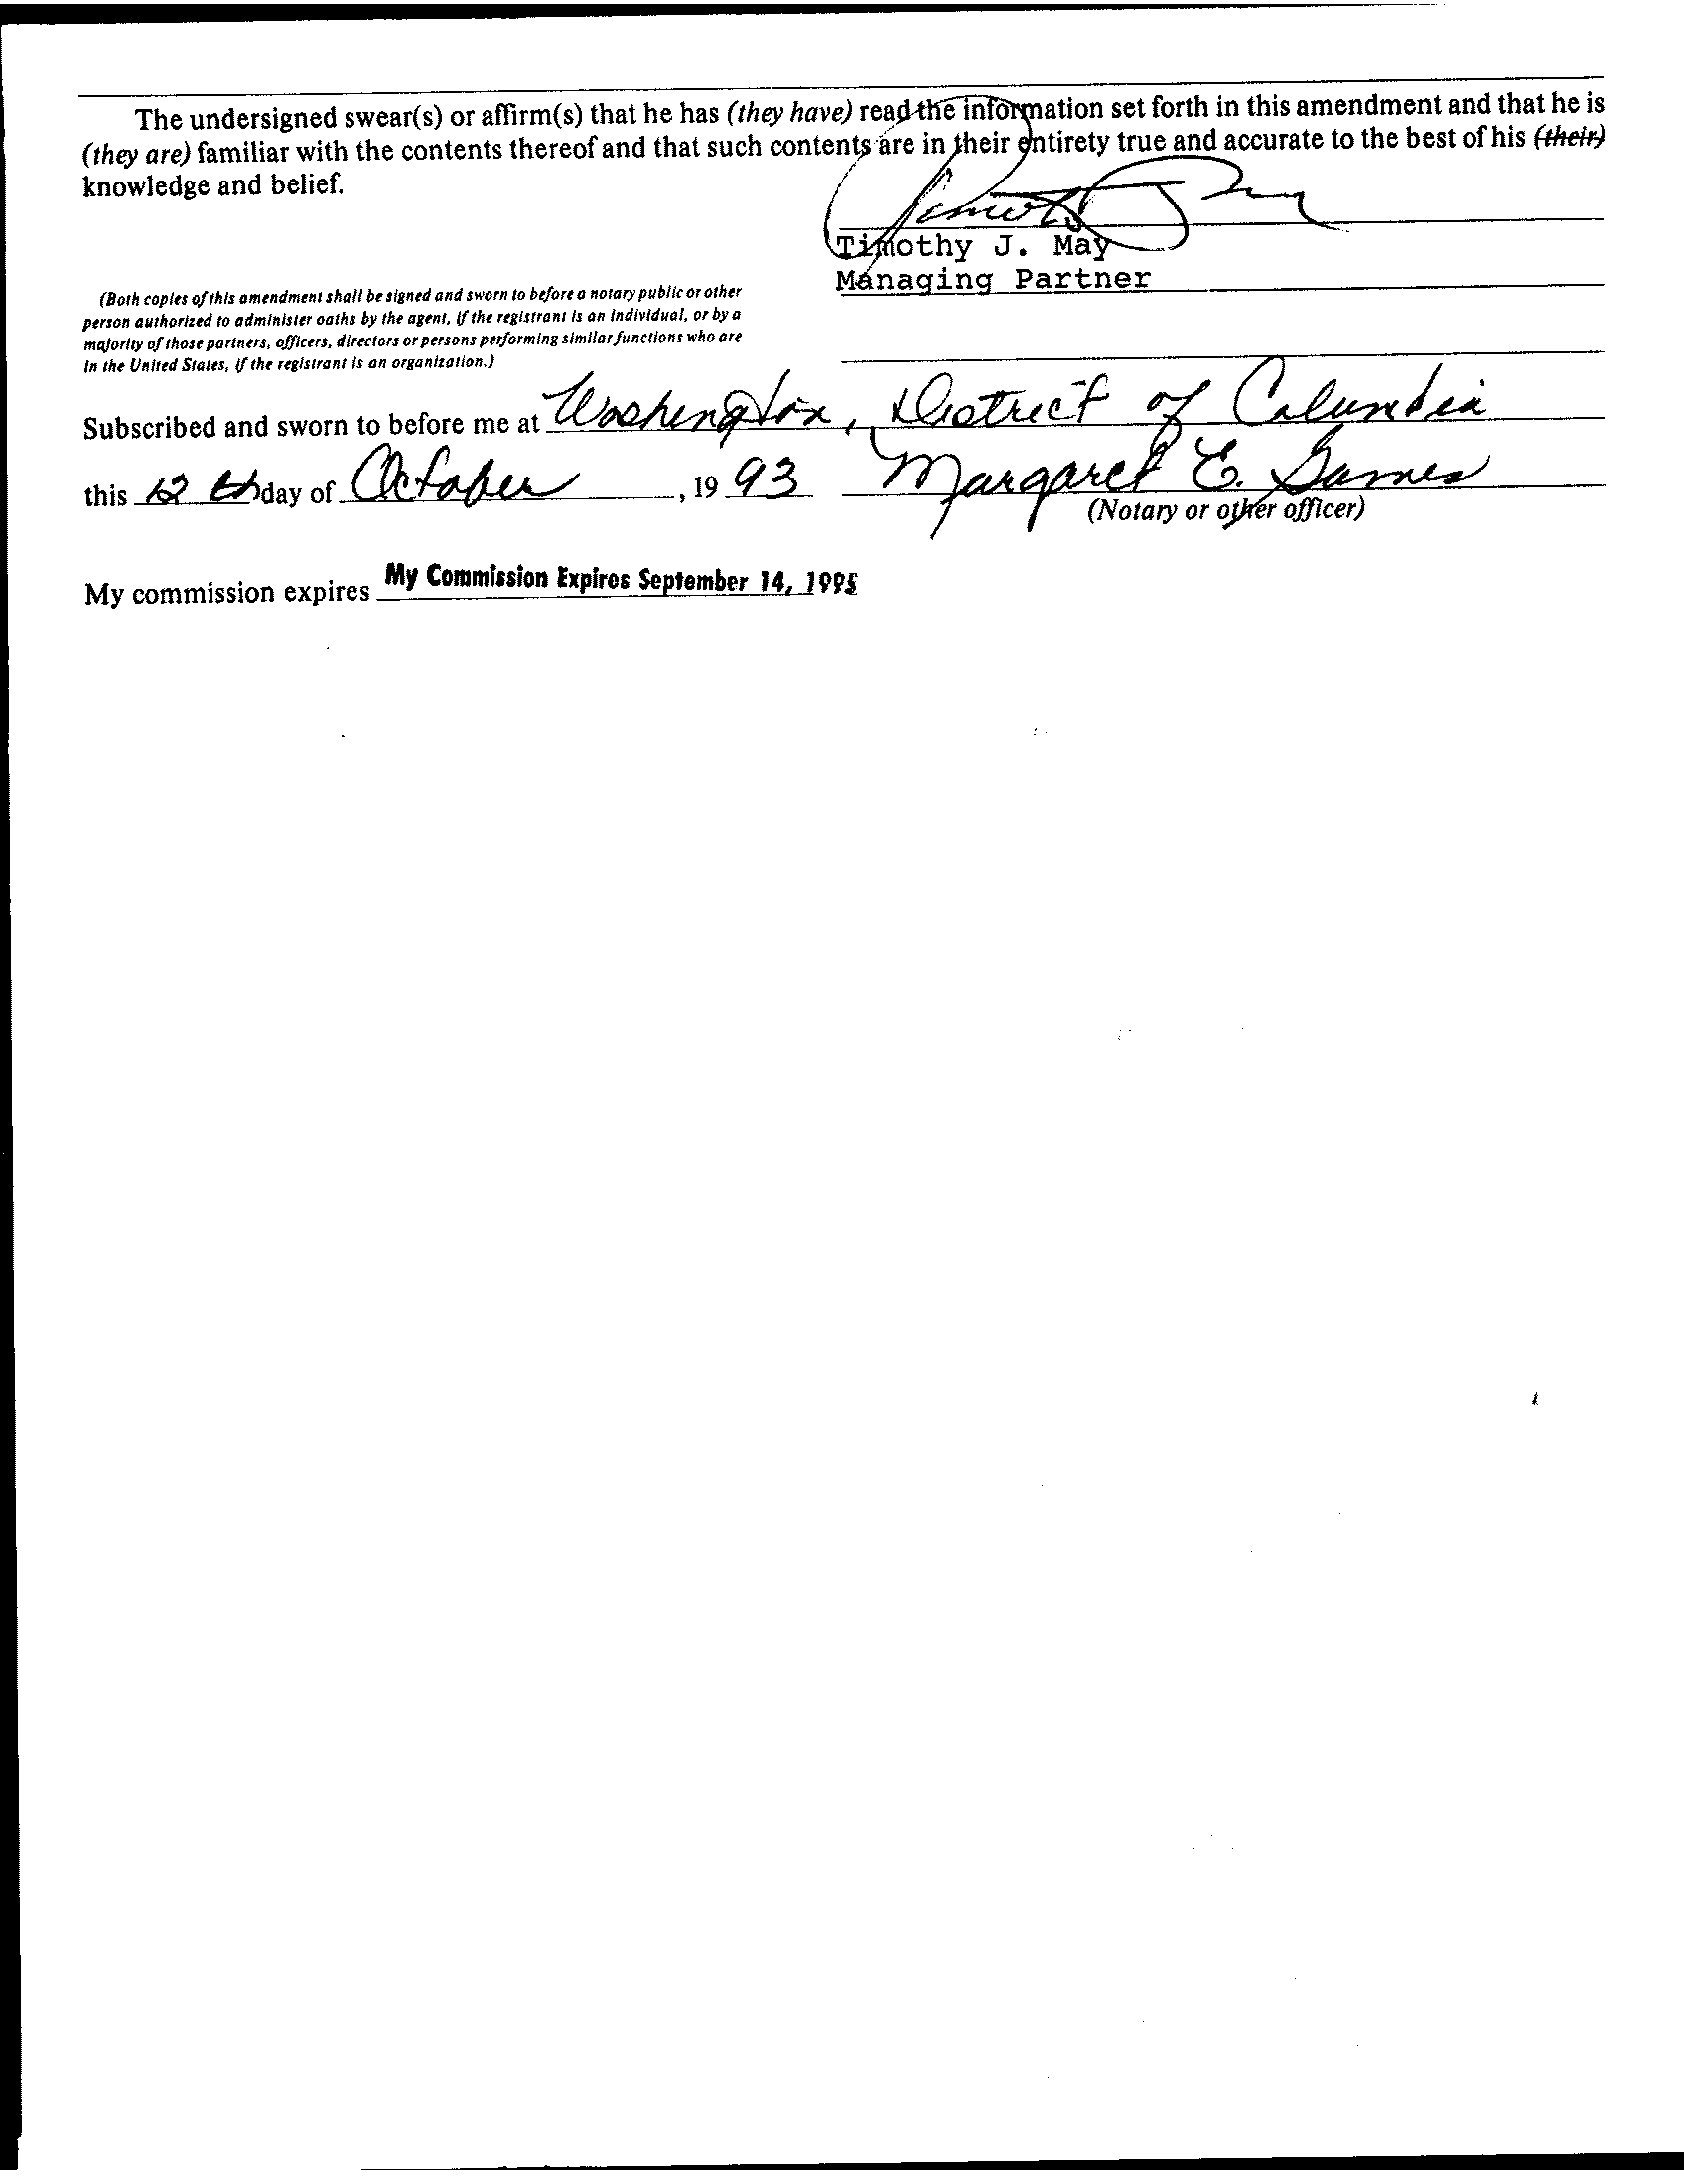 The undersigned swear(s) or affirm(s) that he has (they have) read the information set forth in this amendment and that he is
(they are) familiar with the contents thereof and that such contents are in their entirety true and accurate to the best of his (their)
knowledge and belief.
Timothy J. May
Timothy J. May
Managing Partner
(Both copies of this amendment shall be signed and sworn to before a notary public or other
person authorized to administer oaths by the agent, if the registrant is an individual, or by a
majority of those partners, officers, directors or persons performing similar functions who are
in the United States, if the registrant is an organization.)
Subscribed and sworn to before me at Washington, District of Columbia
this 12 th day of October, 19 93 Margaret E.
(Notary or other officer)
My commission expires My Commission Expires September 14, 1995